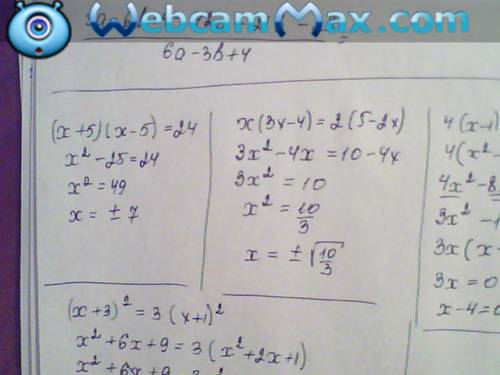 WebcamMax.com
6a-3b+4
(x+5)(x-5)=24
x²-25=24
x²=49
x=±7
x(3x-4)=2(5-2x)
3x²-4x=10-4x
3x²=10
x²=10/3
x=±√(10/3)
4(x-1)
4(x²-
4x²-8
3x²-1
3x(x-
3x=0
x-4=0
(x+3)²=3(x+1)²
x²+6x+9=3(x²+2x+1)
x²+6x+9=3x²